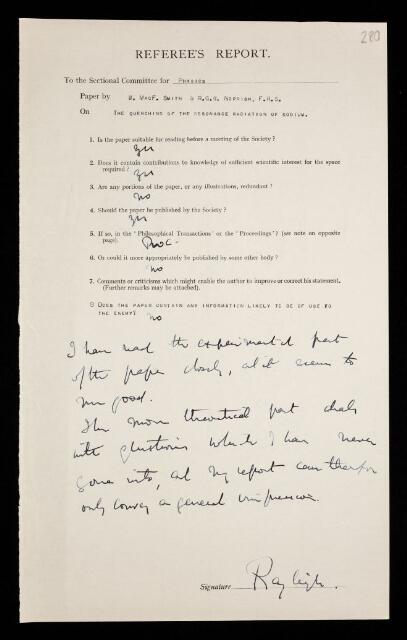 280
REFEREE'S REPORT.
To the Sectional Committee for Physics
Paper by W. MacF. Smith & R.G.W. Norrish, F.R.S.
On The quenching of the resonance radiation of sodium.
1. Is the paper suitable for reading before a meeting of the Society?
Yes
2. Does it contain contributions to knowledge of sufficient scientific interest for the space
required? Yes
3. Are any portions of the paper, or any illustrations, redundant?
No
4. Should the paper be published by the Society?
Yes
5. If so, in the 'Philosophical Transactions' or the 'Proceedings'? (see note on opposite
page). Proc.
6. Or could it more appropriately be published by some other body?
No
7. Comments or criticisms which might enable the author to improve or correct his statement.
(Further remarks may be attached).
8 Does the paper contain any information likely to be of use to
the enemy? No
I have read the experimental part
of the paper closely, and it seems to
me good.
The more theoretical part deals
with questions which I have never
gone into, and my report can therefore
only convey a general impression.
Signature Rayleigh.